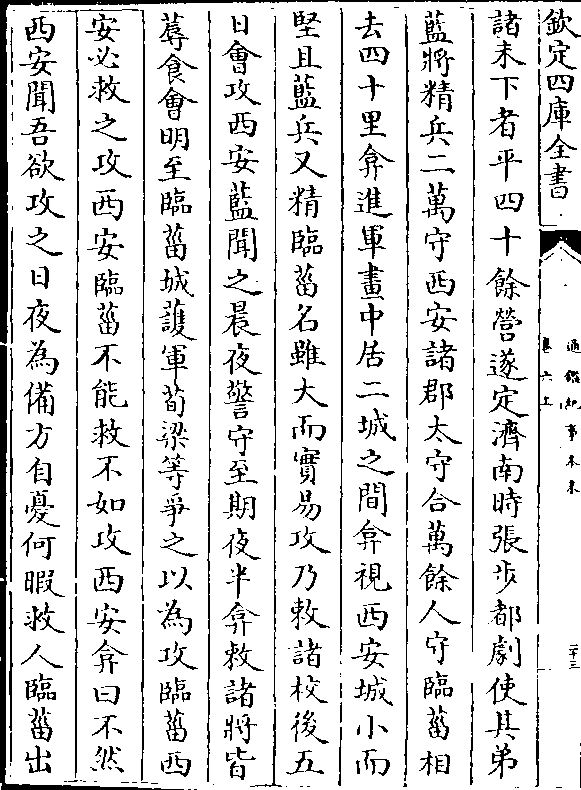 欽定四庫全書
通鑑紀事本末
卷六上
諸未下者平四十餘營遂定濟南時張步都劇使其弟
藍將精兵二萬守西安諸郡太守合萬餘人守臨菑相
去四十里弇進軍畫中居二城之間弇視西安城小而
堅且藍兵又精臨菑名雖大而實易攻乃敕諸校後五
日會攻西安藍聞之晨夜警守至期夜半弇敕諸將皆
蓐食會明至臨菑城護軍荀梁等爭之以為攻臨菑西
安必救之攻西安臨菑不能救不如攻西安弇曰不然
西安聞吾欲攻之日夜為備方自憂何暇救人臨菑出